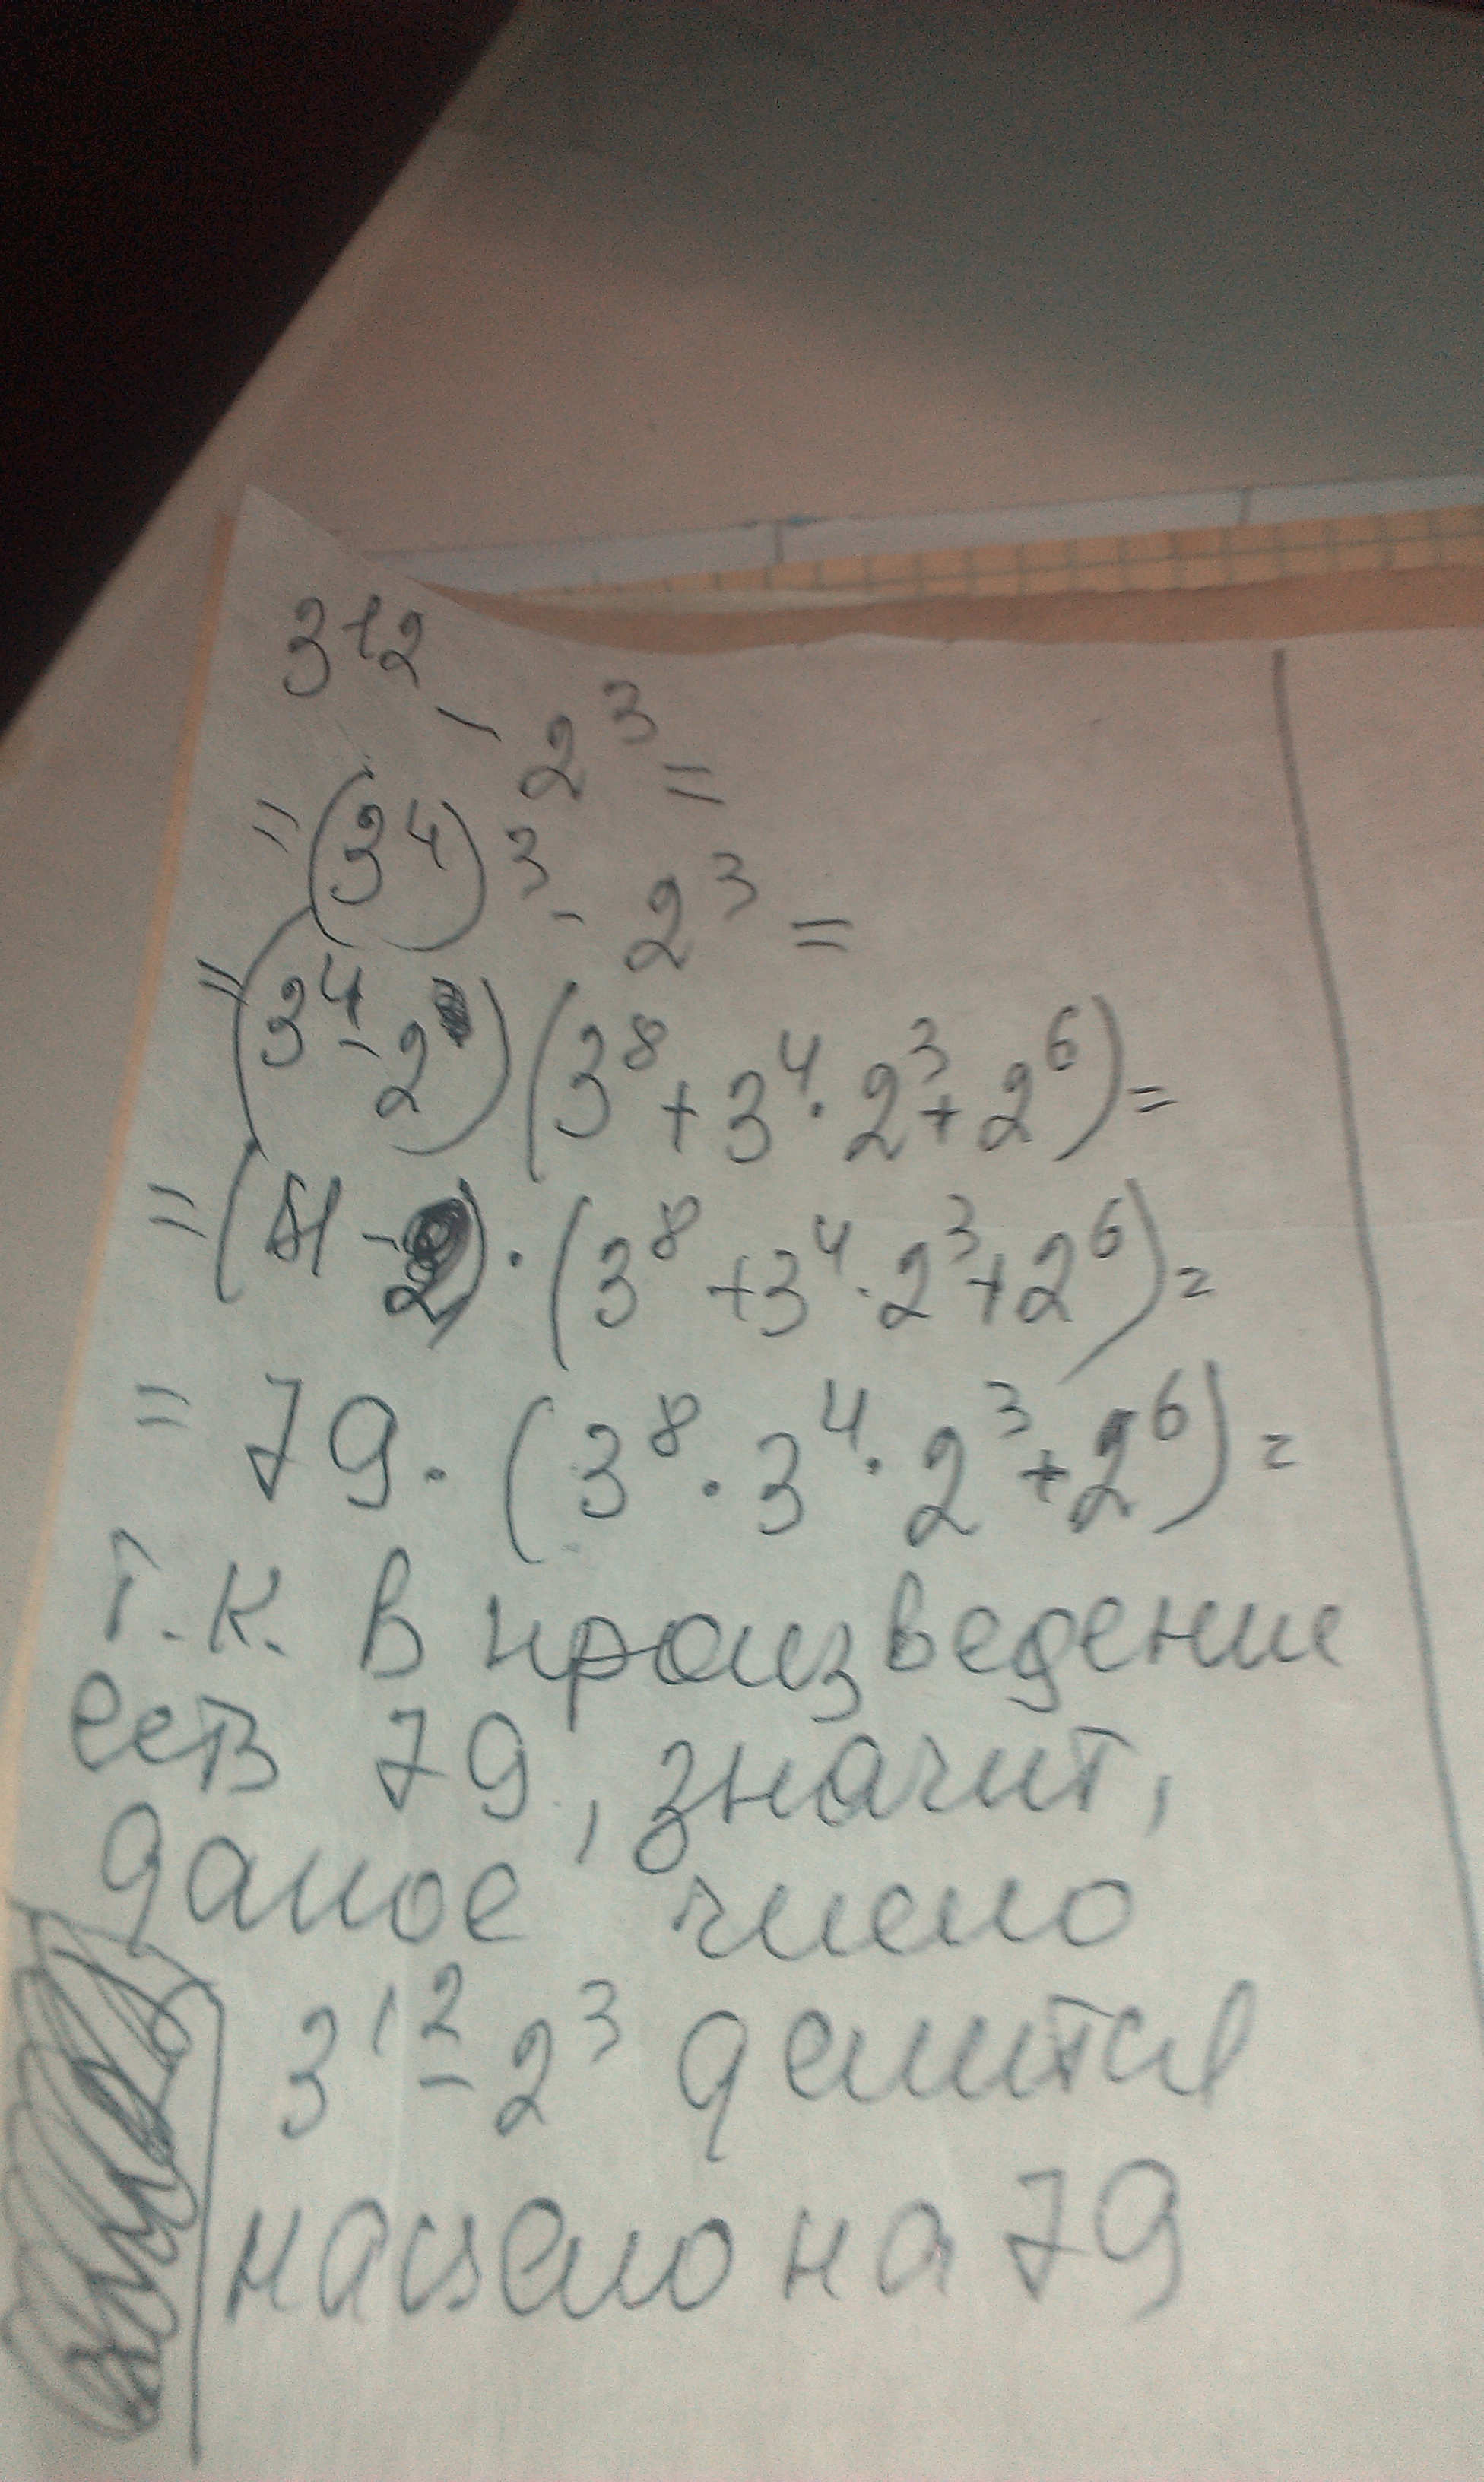 3¹² - 2³ =
= (3⁴)³ - 2³ =
= (3⁴ - 2)(3⁸ + 3⁴ · 2³ + 2⁶) =
= (81 - 2) · (3⁸ + 3⁴ · 2³ + 2⁶) =
= 79 · (3⁸ · 3⁴ · 2³ + 2⁶) =
Т.к. в произведение
есть 79, значит,
даное число
3¹² - 2³ делится
нацело на 79